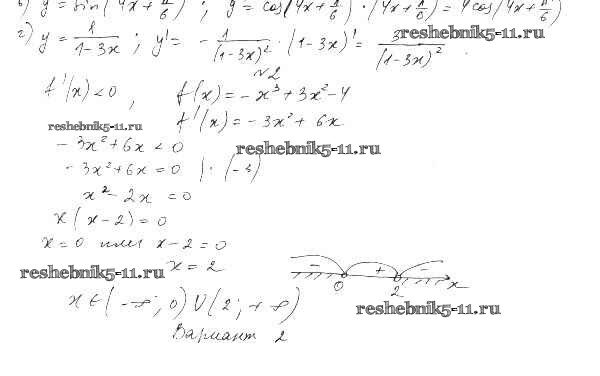 б) y = sin(4x + π/6) ; y' = cos(4x + π/6) · (4x + π/6)' = 4cos(4x + π/6)
г) y = 1/(1-3x) ; y' = - 1/(1-3x)² · (1-3x)' = 3/(1-3x)² .
reshebnik5-11.ru
№2
f'(x) < 0 , f(x) = -x³ + 3x² - 4
f'(x) = -3x² + 6x
reshebnik5-11.ru
-3x² + 6x < 0
reshebnik5-11.ru
-3x² + 6x = 0 | : (-3)
x² - 2x = 0
x(x-2) = 0
x = 0 или x - 2 = 0
x = 2
reshebnik5-11.ru
- + -
0 2 x
x ∈ (-∞; 0) ∪ (2; +∞)
reshebnik5-11.ru
Вариант 2